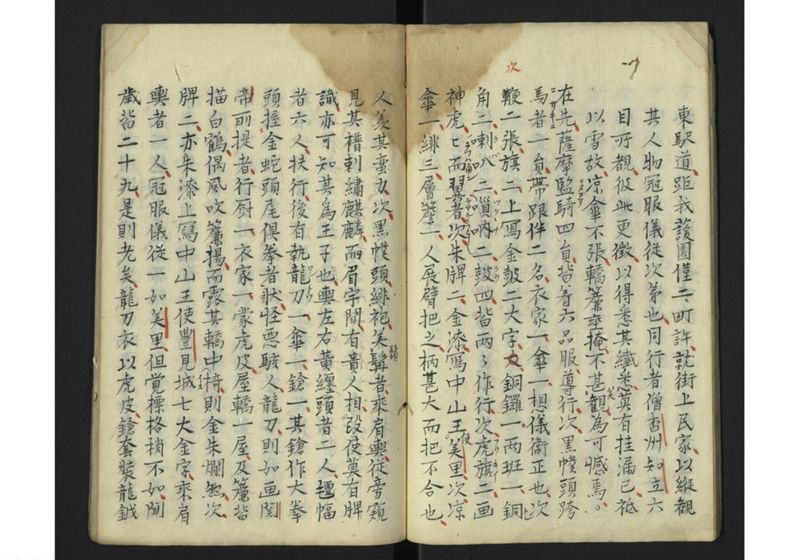 東駅道距我護園僅二町許就街上民家以縦觀
其人物冠服儀従次第也同行者僧香洲知立六
目所觀彼此更徴以得悉其纎悉莫有挂漏已祗
以雪故凉傘不張轎簾垂掩不甚觀為可憾焉
次
在先薩摩監騎四員皆着六品服導行次黒幞頭跨
馬者一員帶跟伴二名衣家一傘一想儀衛正也次
鞭二張旗二上寫金鼓二大字又銅鑼一両班一銅
角二喇叭二嗩吶二鼓四皆兩々作行次虎旗二画
神虎七而翼者次朱牌二金漆寫中山王使美里次凉
傘一緋三層簷二人展臂把之柄甚大而把不合也
人羨其蛮力次黒幞頭緋袍美髯者乗肩輿従旁窺
見其禮刺繍麒麟而眉宇間有貴人相段使莫有牌
識亦可知其爲王子也輿左右黄纏頭者二人幅
者六人扶行後有執龍刀一傘一鎗一其鎗作大拳
頭握金蛇頭尾倶拳者状怪悪駭人龍刀則如画関
帝前提者行厨一衣家一蒙虎皮屋轎一屋及簾皆
描白鶴偶風吹簾揚而露其轎中椅則金朱爛然次
牌二亦朱漆上寫中山王使豊見城七大金字乗肩
輿者一人冠服儀従一如美里但覚標格稍不如聞
歳皆二十九是則老矣龍刀衣以虎皮鎗套装龍鉞